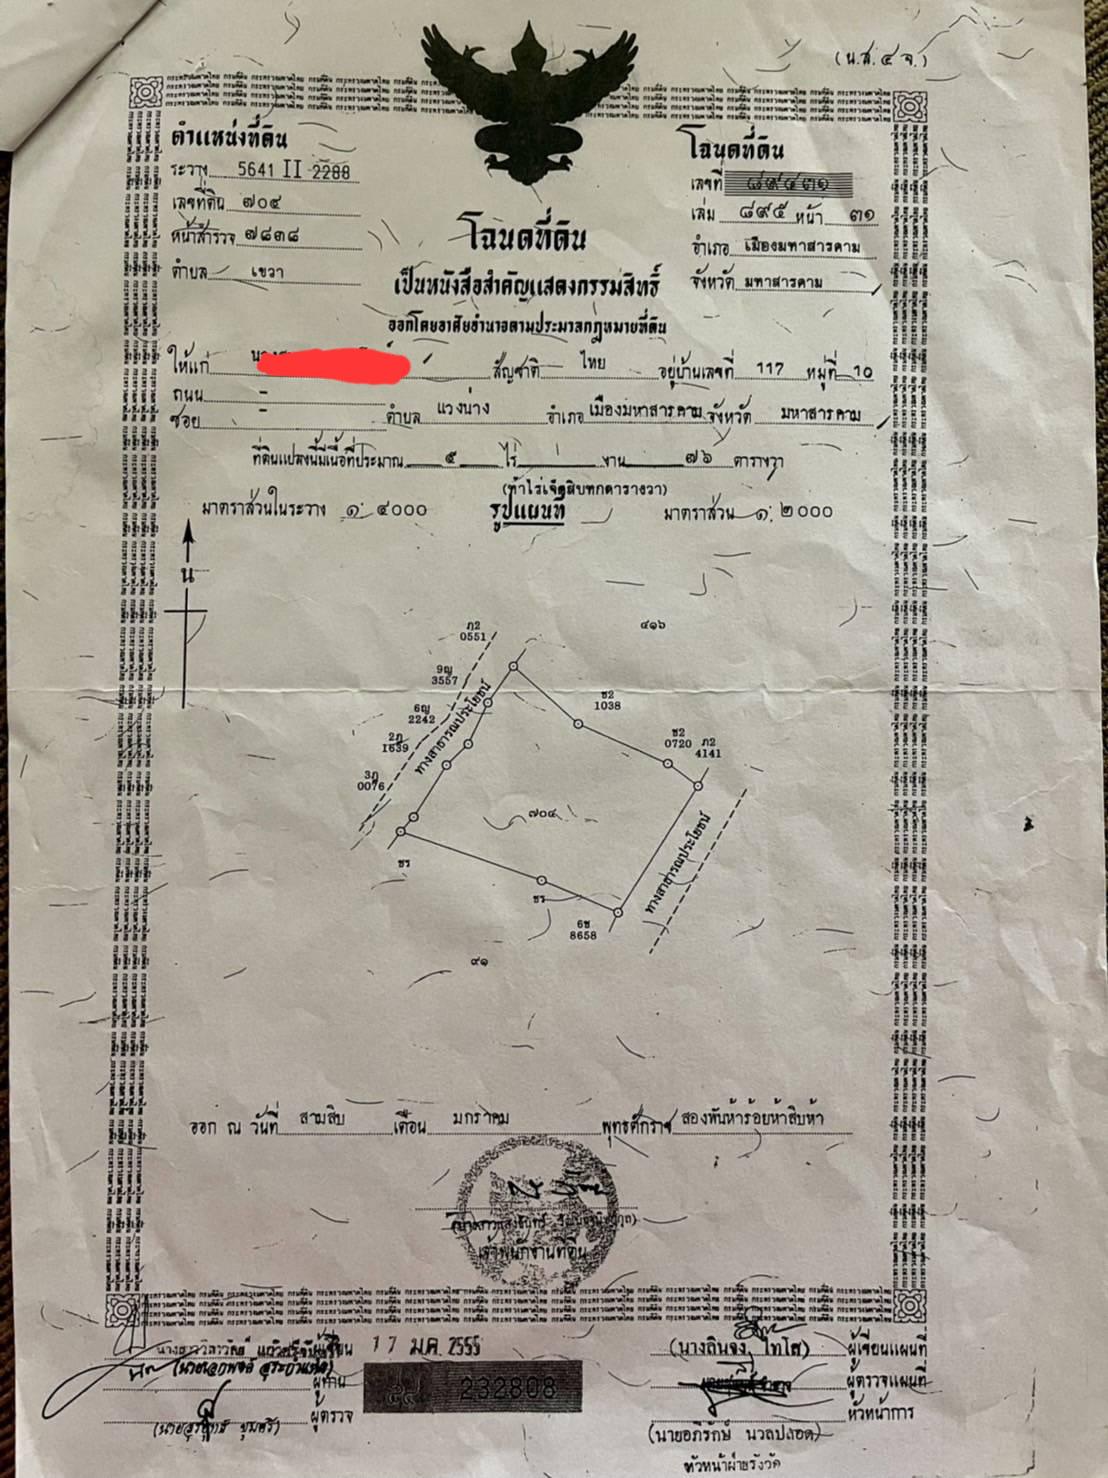 (น.ส.๔ จ.)
ตำแหน่งที่ดิน
ระวาง 5641 II 2288
เลขที่ดิน ๗๐๔
หน้าสำรวจ ๗๘๓๘
ตำบล เขวา
โฉนดที่ดิน
เลขที่ ๘๙๔๓๑
เล่ม ๘๙๕ หน้า ๓๑
อำเภอ เมืองมหาสารคาม
จังหวัด มหาสารคาม
โฉนดที่ดิน
เป็นหนังสือสำคัญแสดงกรรมสิทธิ์
ออกโดยอาศัยอำนาจตามประมวลกฎหมายที่ดิน
ให้แก่ สัญชาติ ไทย อยู่บ้านเลขที่ 117 หมู่ที่ 10
ถนน -
ซอย - ตำบล แวงน่าง อำเภอ เมืองมหาสารคาม จังหวัด มหาสารคาม
ที่ดินแปลงนี้มีเนื้อที่ประมาณ ๕ ไร่ - งาน ๗๖ ตารางวา
(ห้าไร่เจ็ดสิบหกตารางวา)
มาตราส่วนในระวาง ๑:๔๐๐๐ รูปแผนที่ มาตราส่วน ๑:๒๐๐๐
น
ภ2
0551
๔๑๖
9ญ
3557
6ญ
2242
2ภ
1639
3ภ
0076
ทางสาธารณประโยชน์
ช2
1038
ช2
0720
ภ2
4141
๗๐๔
ทางสาธารณประโยชน์
ชร
ชร
6ช
8658
๙๑
ออก ณ วันที่ สามสิบ เดือน มกราคม พุทธศักราช สองพันห้าร้อยห้าสิบห้า
เจ้าพนักงานที่ดิน
ผู้เขียน
17 ม.ค. 2555
ผู้ทาน
232808
ผู้ตรวจ
(นางลินจง ไทโส) ผู้เขียนแผนที่
ผู้ตรวจแผนที่
หัวหน้าการ
(นายอภิรักษ์ นวลปลอด)
หัวหน้าฝ่ายรังวัด